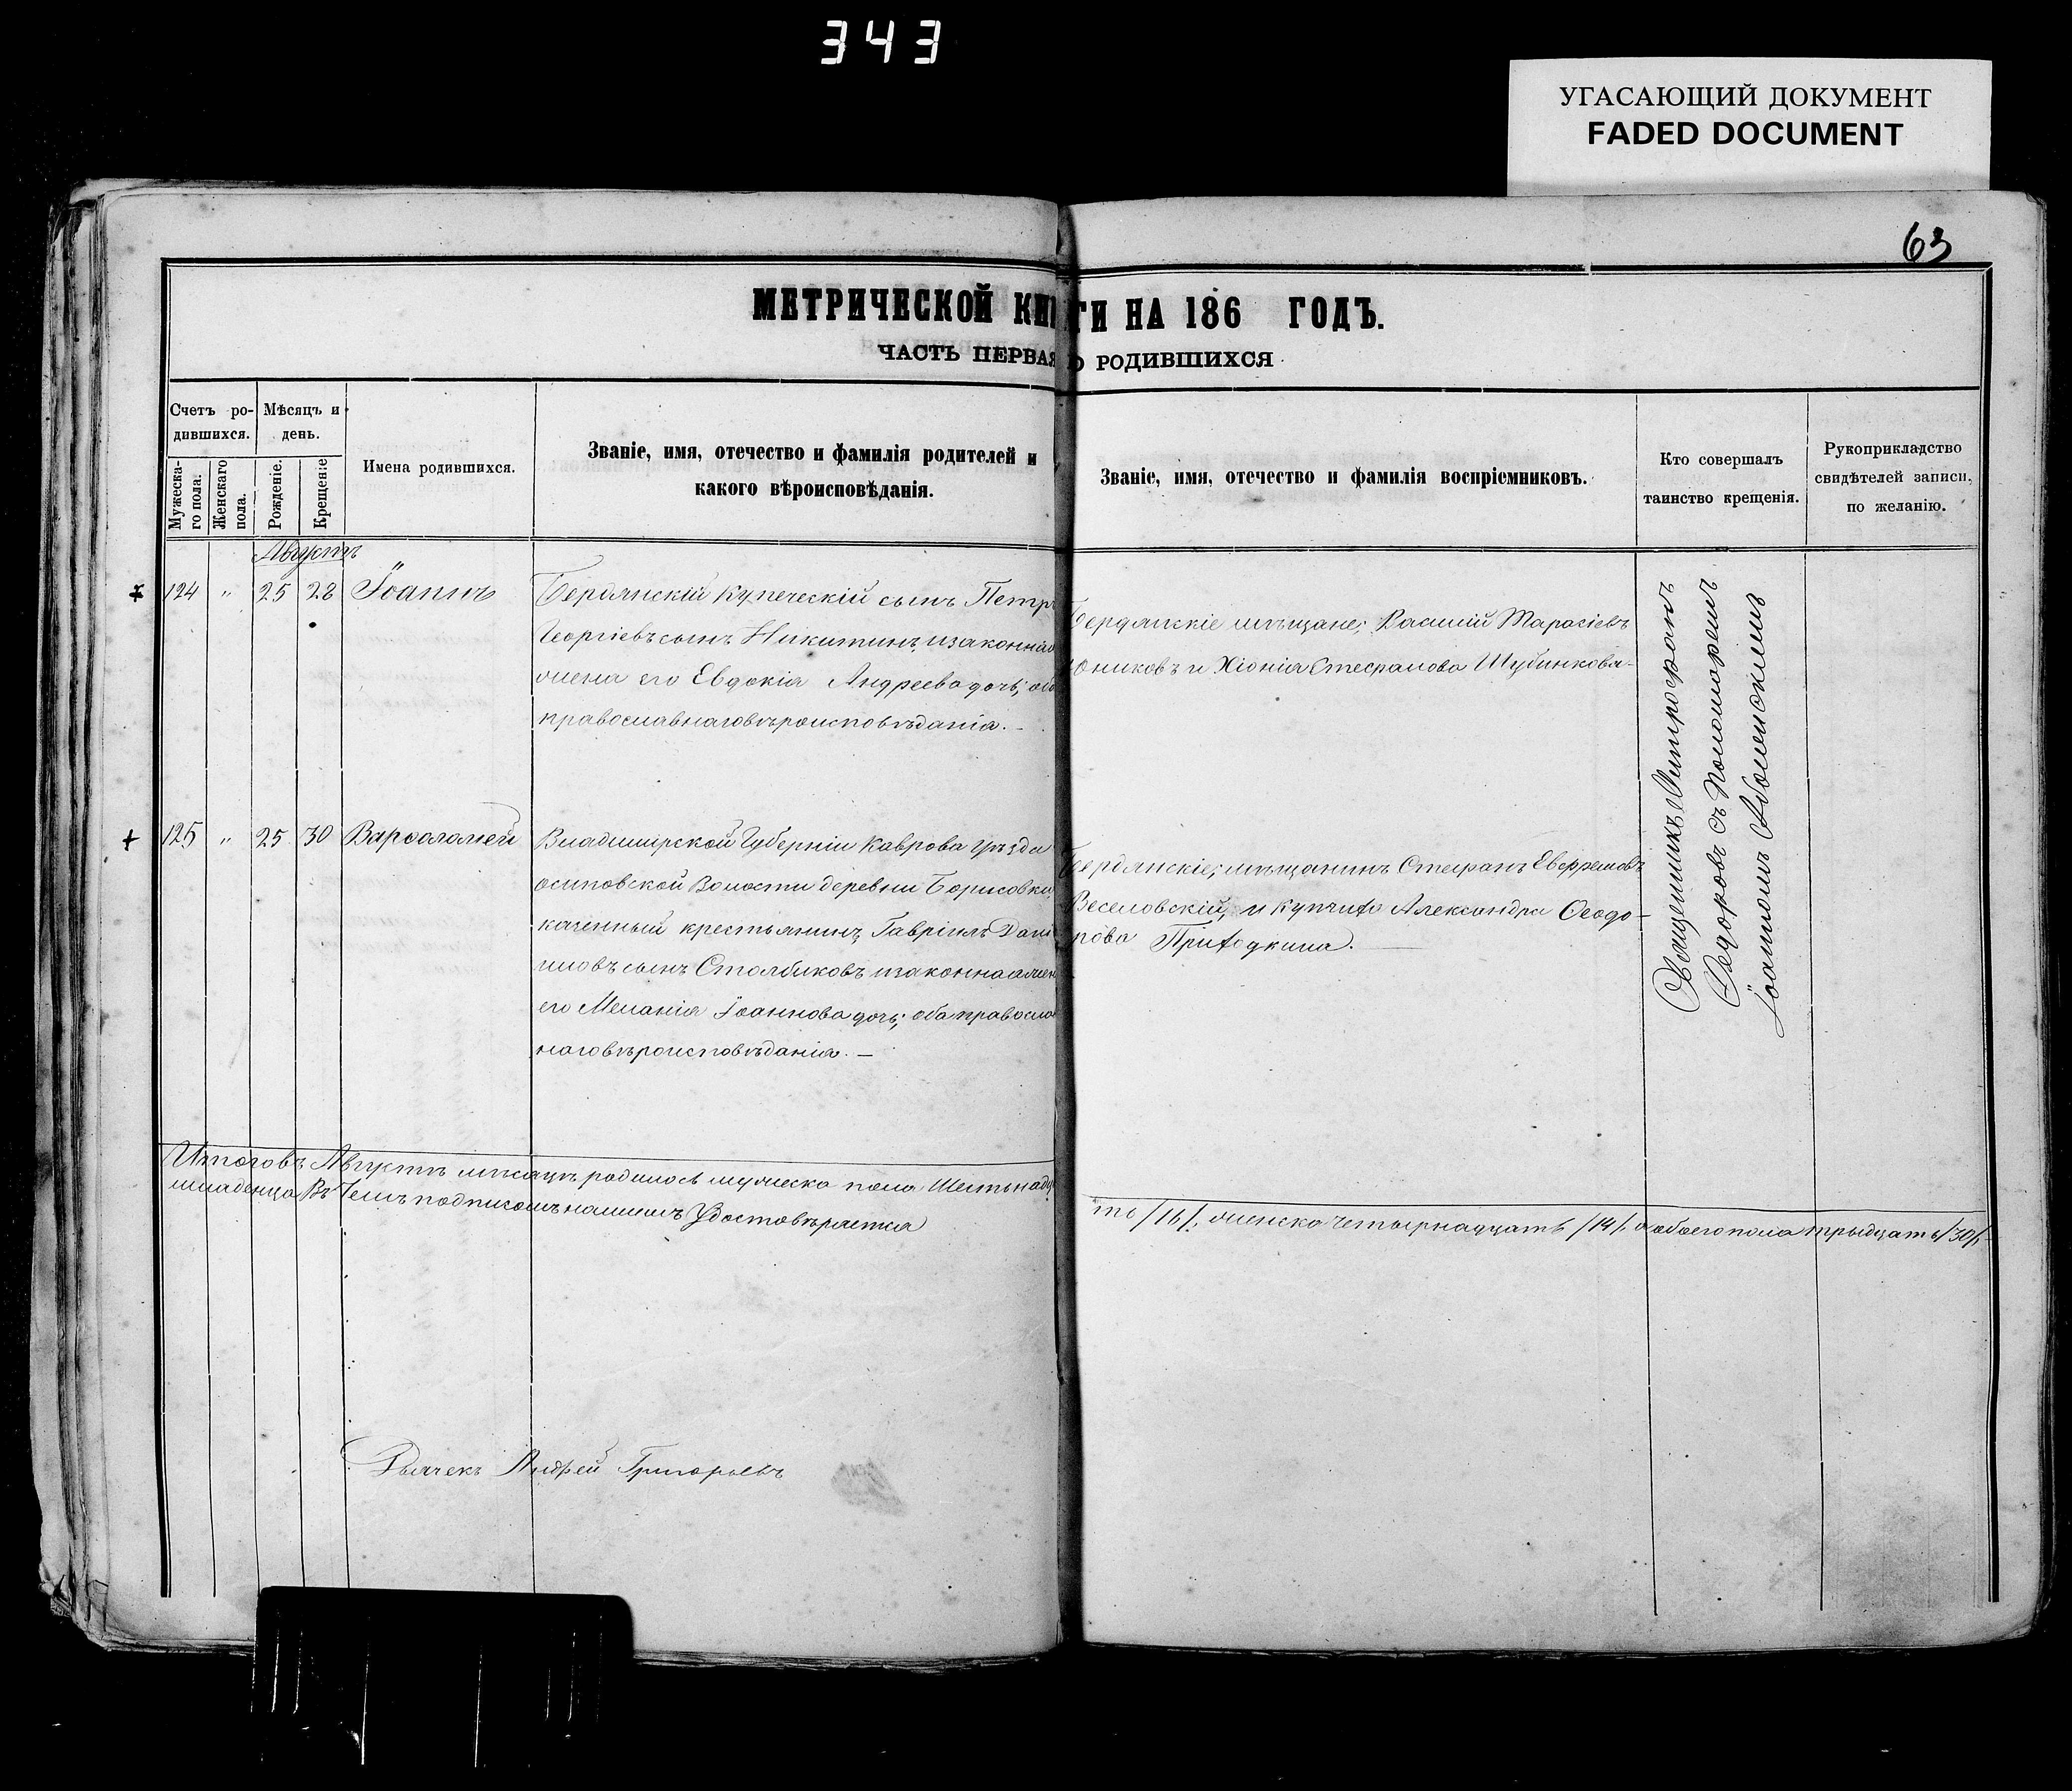 343
УГАСАЮЩИЙ ДОКУМЕНТ
FADED DOCUMENT
63
МЕТРИЧЕСКОЙ КНИГИ НА 186 ГОДЪ.
ЧАСТЬ ПЕРВАЯ О РОДИВШИХСЯ
Счетъ ро-
дившихся.
Мужеска-
го пола.
Женскаго
пола.
Мѣсяцъ и
день.
Рожденіе.
Крещеніе
Имена родившихся.
Званіе, имя, отечество и фамилія родителей и
какого вѣроисповѣданія.
Званіе, имя, отечество и фамилія воспріемниковъ.
Кто совершалъ
таинство крещенія.
Рукоприкладство
свидѣтелей записи,
по желанію.
Августъ
124 " 25 28 Іоаннъ
Бердянскій купеческій сынъ Петръ
Георгіевъ сынъ Никитинъ, и законная
жена его Евдокія Андреева дочь; оба
православнаго вѣроисповѣданія. -
Бердянскіе мѣщане; Василій Тарасіевъ
и Хіонія Стефанова Шубинкова-
Священникъ Митрофанъ
Федоровъ съ Пономаремъ
Іоанномъ
125 " 25 30 Варфоломей
Владимирской Губерніи Каврова Уѣзда
осиповской Волости деревни Борисовки,
крестьянинъ, Гавріилъ Дани
иловъ сынъ Столбиковъ и законная жена
его Меланія Іоаннова дочь; оба православ
наго вѣроисповѣданія. —
Бердянскіе; мѣщанинъ Стефанъ Евфремовъ
Веселовскій, и купчиха Александра Феодо-
рова Приходкина. —
Итого въ Августѣ мѣсяцѣ родилось мужеска пола Шестьнадца
ть /16/, женска четырнадцать /14/. а обоего пола трыдцать /30/,
младенца Въ Чемъ подписомъ нашимъ Удостовѣряется
Дьячекъ Андрей Григорьевъ